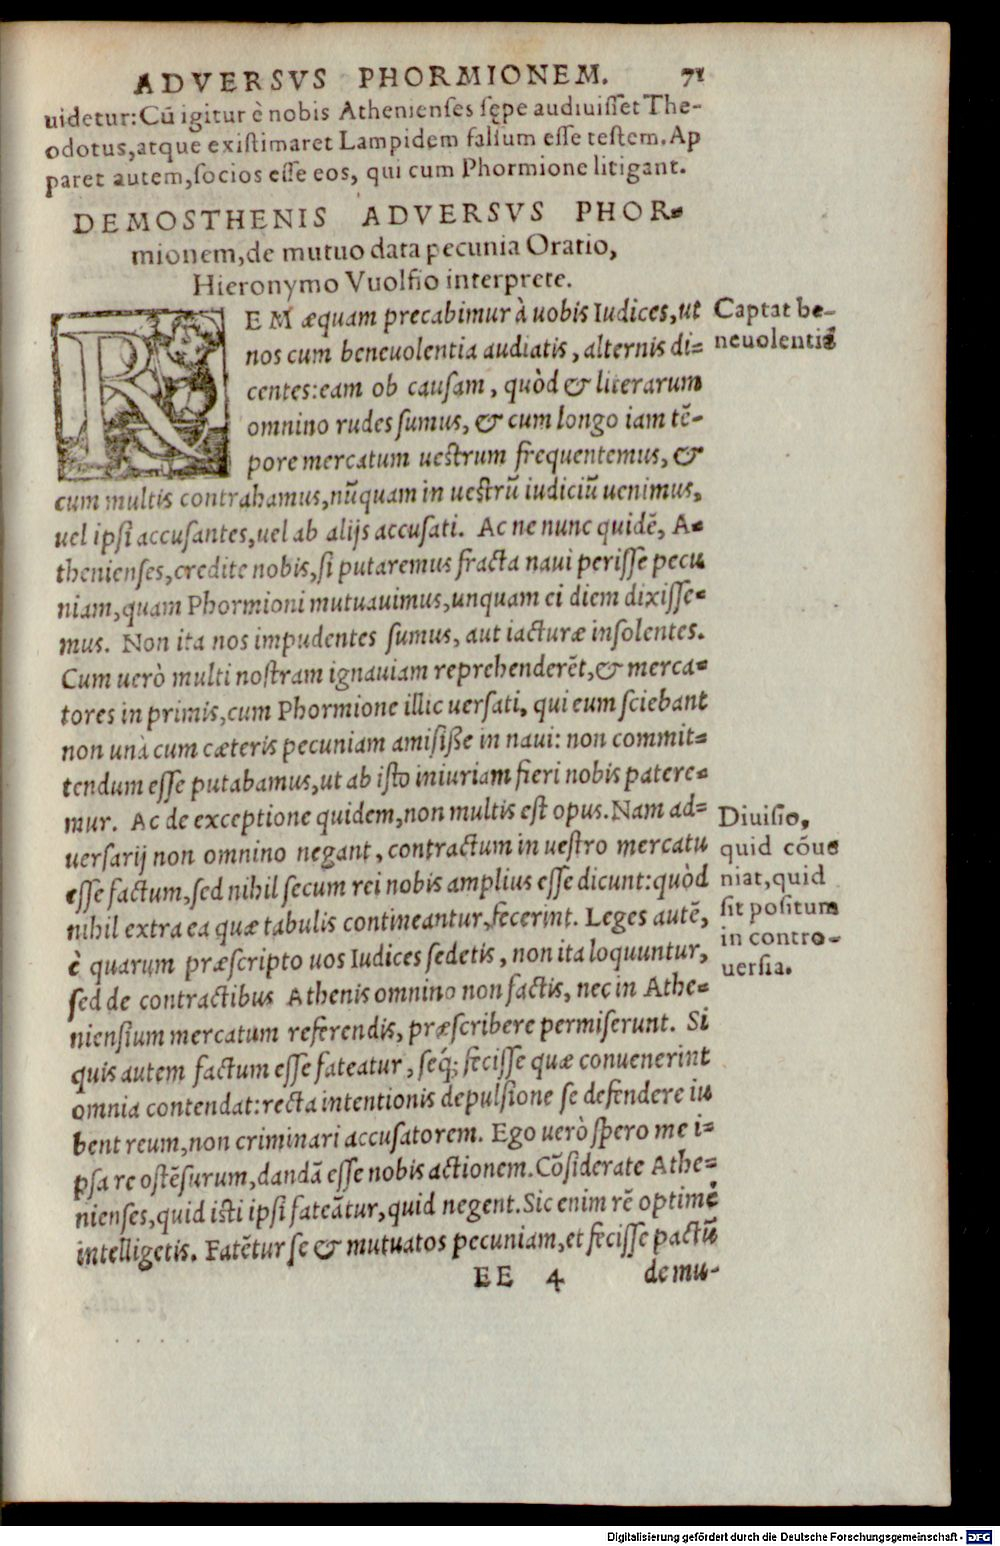 ADVERSVS PHORMIONEM. 71
uidetur: Cũ igitur è nobis Athenienses sępe audiuisset The-
odotus, atque existimaret Lampidem falsum esse testem. Ap
paret autem, socios esse eos, qui cum Phormione litigant.
DEMOSTHENIS ADVERSVS PHOR-
mionem, de mutuo data pecunia Oratio,
Hieronymo Vuolfio interprete.
REM æquam precabimur à uobis Iudices, ut
nos cum beneuolentia audiatis, alternis di-
centes: eam ob causam, quòd & literarum
omnino rudes sumus, & cum longo iam tẽ-
pore mercatum uestrum frequentemus, &
cum multis contrahamus, nũquam in uestrũ iudiciũ uenimus,
uel ipsi accusantes, uel ab alijs accusati. Ac ne nunc quidẽ, A-
thenienses, credite nobis, si putaremus fracta naui perisse pecu
niam, quam Phormioni mutuauimus, unquam ei diem dixisse-
mus. Non ita nos impudentes sumus, aut iacturæ insolentes.
Cum uerò multi nostram ignauiam reprehenderẽt, & merca-
tores in primis, cum Phormione illic uersati, qui eum sciebant
non unà cum cæteris pecuniam amisiße in naui: non commit-
tendum esse putabamus, ut ab isto iniuriam fieri nobis patere-
mur. Ac de exceptione quidem, non multis est opus. Nam ad-
uersarij non omnino negant, contractum in uestro mercatu
esse factum, sed nihil secum rei nobis amplius esse dicunt: quòd
nihil extra ea quæ tabulis contineantur, fecerint. Leges autẽ,
è quarum præscripto uos Iudices sedetis, non ita loquuntur,
sed de contractibus Athenis omnino non factis, nec in Athe-
niensium mercatum referendis, præscribere permiserunt. Si
quis autem factum esse fateatur, seq́; fecisse quæ conuenerint
omnia contendat: recta intentionis depulsione se defendere iu
bent reum, non criminari accusatorem. Ego uerò spero me i-
psa re ostẽsurum, dandã esse nobis actionem. Cõsiderate Athe-
nienses, quid isti ipsi fateãtur, quid negent. Sic enim rẽ optimè
intelligetis. Fatẽtur se & mutuatos pecuniam, et fecisse pactũ
EE 4 de mu-
Captat be-
neuolentiã
Diuisio,
quid cõue
niat, quid
sit positum
in contro-
uersia.
Digitalisierung gefördert durch die Deutsche Forschungsgemeinschaft - DFG